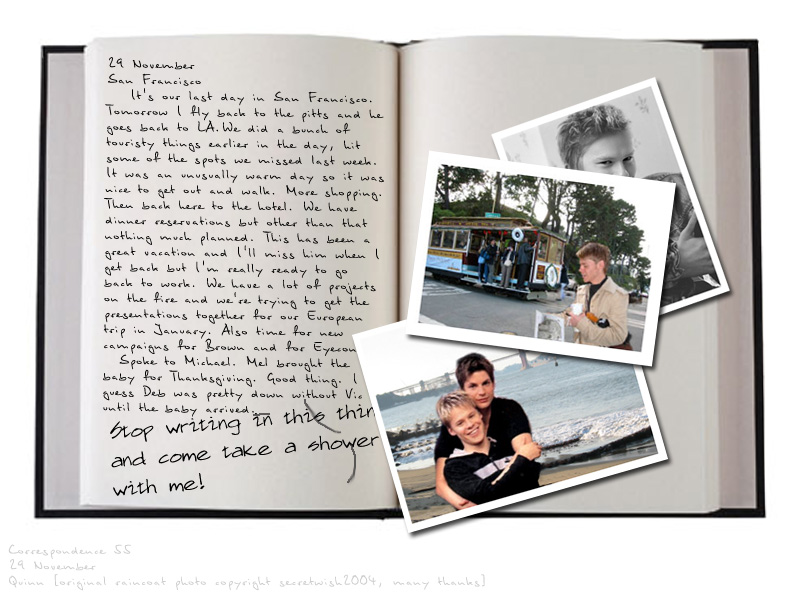 29 November
San Francisco
It's our last day in San Francisco.
Tomorrow I fly back to the pitts and he
goes back to LA. We did a bunch of
touristy things earlier in the day, hit
some of the spots we missed last week.
It was an unusually warm day so it was
nice to get out and walk. More shopping.
Then back here to the hotel. We have
dinner reservations but other than that
nothing much planned. This has been a
great vacation and I'll miss him when I
get back but I'm really ready to go
back to work. We have a lot of projects
on the fire and we're trying to get the
presentations together for our European
trip in January. Also time for new
campaigns for Brown and for Eyecon
Spoke to Michael. Mel brought the
baby for Thanksgiving. Good thing. I
guess Deb was pretty down without Vic
until the baby arrived.
Stop writing in this thin
and come take a shower
with me!
Correspondence 55
29 November
Quinn [original raincoat photo copyright secretwish2004, many thanks]